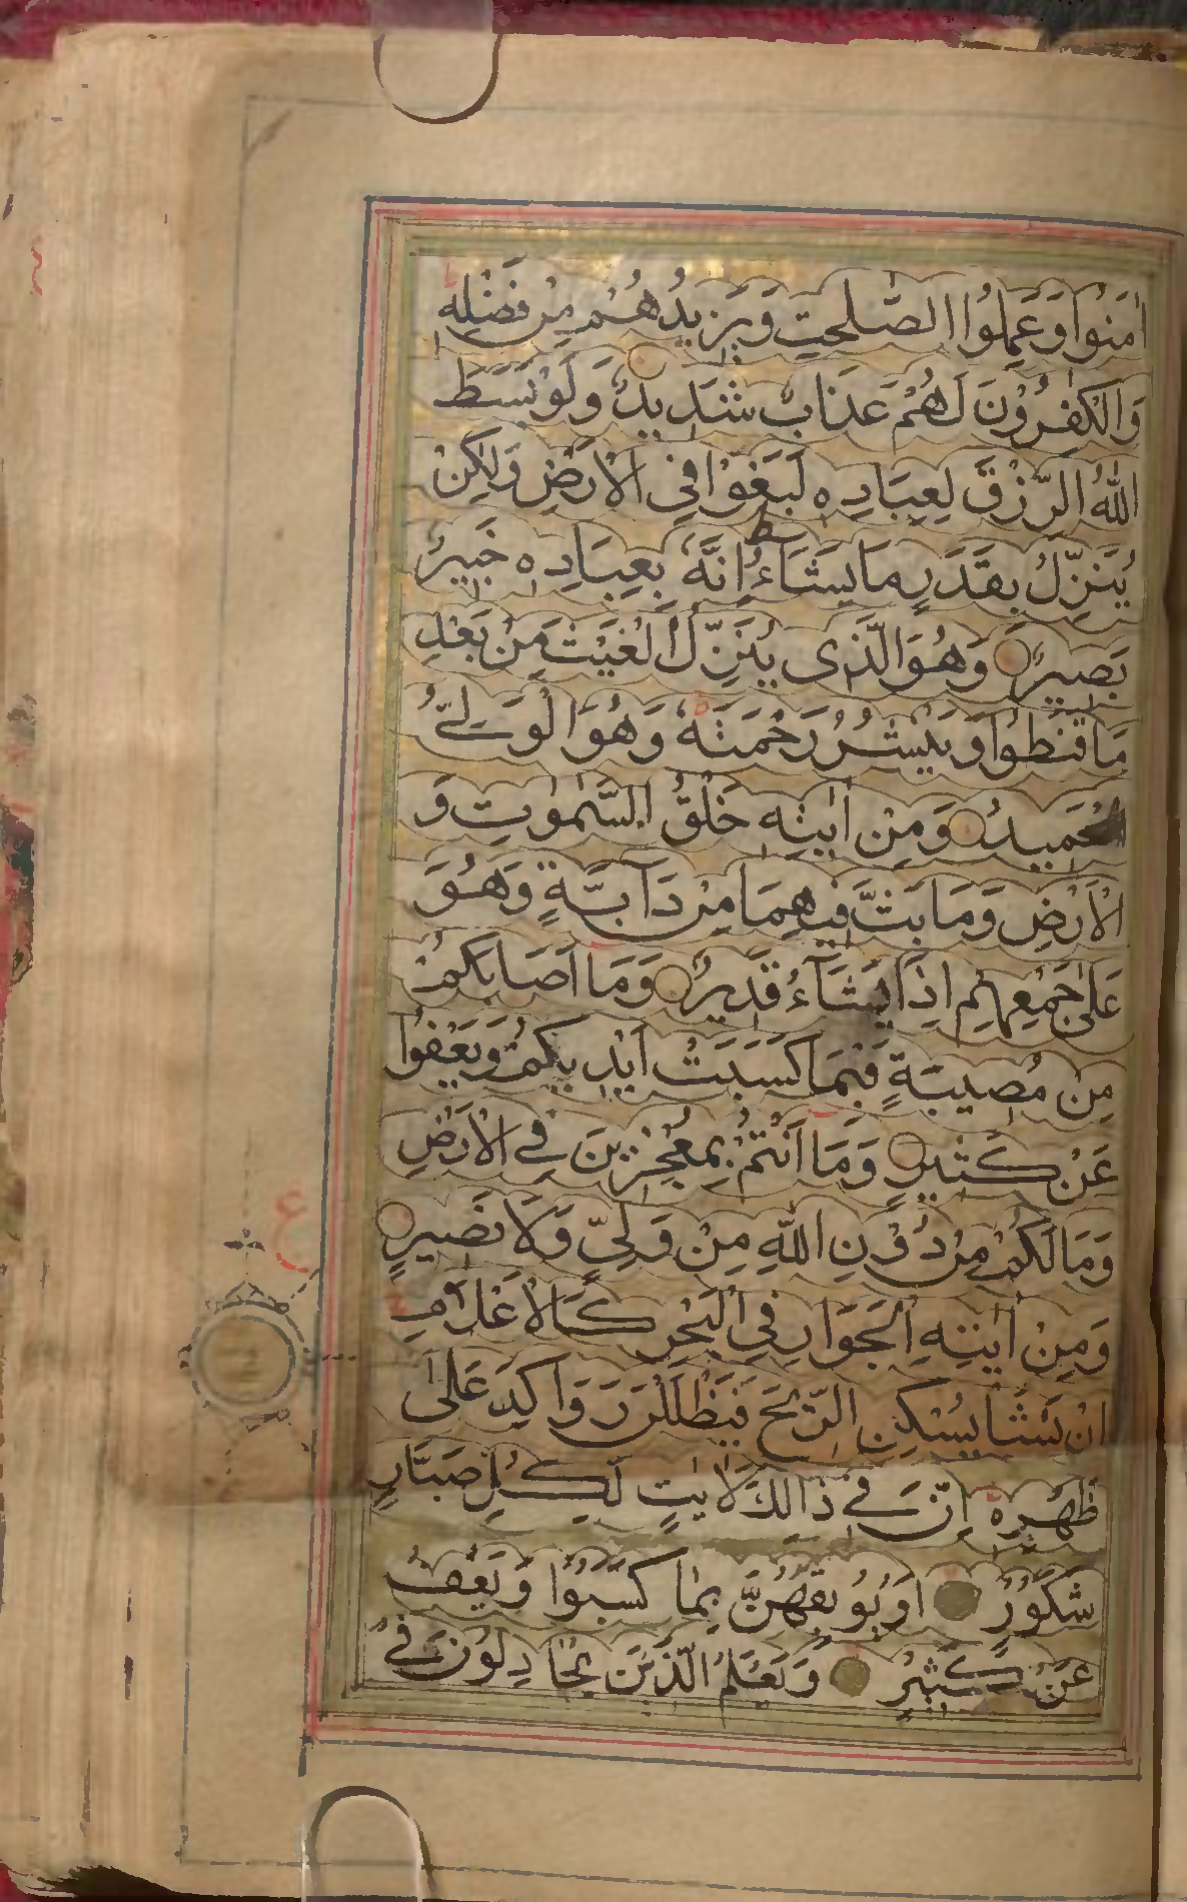 اٰمَنُوا وَعَمِلُوا الصّٰلِحٰتِ وَيَزِيدُهُمْ مِنْ فَضْلِهٖ ط
وَالْكٰفِرُوْنَ لَهُمْ عَذَابٌ شَدِيدٌ وَلَوْ بَسَطَ
اللّٰهُ الرِّزْقَ لِعِبَادِهٖ لَبَغَوْا فِي الْاَرْضِ وَلٰكِنْ
يُنَزِّلُ بِقَدَرٍ مَا يَشَاءُ ط اِنَّهٗ بِعِبَادِهٖ خَبِيرٌ
بَصِيرٌ وَهُوَ الَّذِى يُنَزِّلُ الْغَيْثَ مِنْ بَعْدِ
مَا قَنَطُوْا وَيَنْشُرُ رَحْمَتَهٗ ط وَهُوَ الْوَلِيُّ
الْحَمِيدُ وَمِنْ اٰيٰتِهٖ خَلْقُ السَّمٰوٰتِ وَ
الْاَرْضِ وَمَا بَثَّ فِيهِمَا مِنْ دَآبَّةٍ وَهُوَ
عَلٰى جَمْعِهِمْ اِذَا يَشَآءُ قَدِيرٌ وَمَا اَصَابَكُمْ
مِنْ مُصِيبَةٍ فَبِمَا كَسَبَتْ اَيْدِيكُمْ وَيَعْفُوْا
عَنْ كَثِيرٍ وَمَا اَنْتُمْ بِمُعْجِزِينَ فِي الْاَرْضِ
وَمَا لَكُمْ مِنْ دُوْنِ اللّٰهِ مِنْ وَلِيٍّ وَلَا نَصِيرٍ
ع
وَمِنْ اٰيٰتِهِ الْجَوَارِ فِي الْبَحْرِ كَالْاَعْلَامِ
اِنْ يَشَأْ يُسْكِنِ الرِّيْحَ فَيَظْلَلْنَ رَوَاكِدَ عَلٰى
ظَهْرِهٖ ط اِنَّ فِي ذَالِكَ لَاٰيٰتٍ لِكُلِّ صَبَّارٍ
شَكُوْرٍ اَوْ يُوْبِقْهُنَّ بِمَا كَسَبُوْا وَيَعْفُ
عَنْ كَثِيْرٍ وَيَعْلَمَ الَّذِيْنَ يُجَادِلُوْنَ فِي